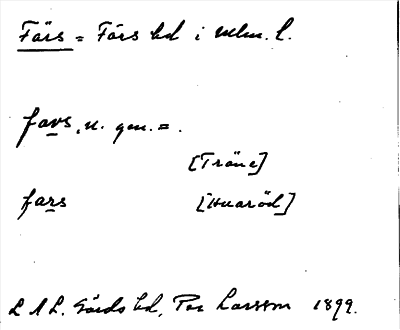 Färs = Färs hd i Mlm. l.
fars, n. gen. = .
[Träne]
fars [Huaröd]
L A L. Gärds hd, Per Larsson 1899.